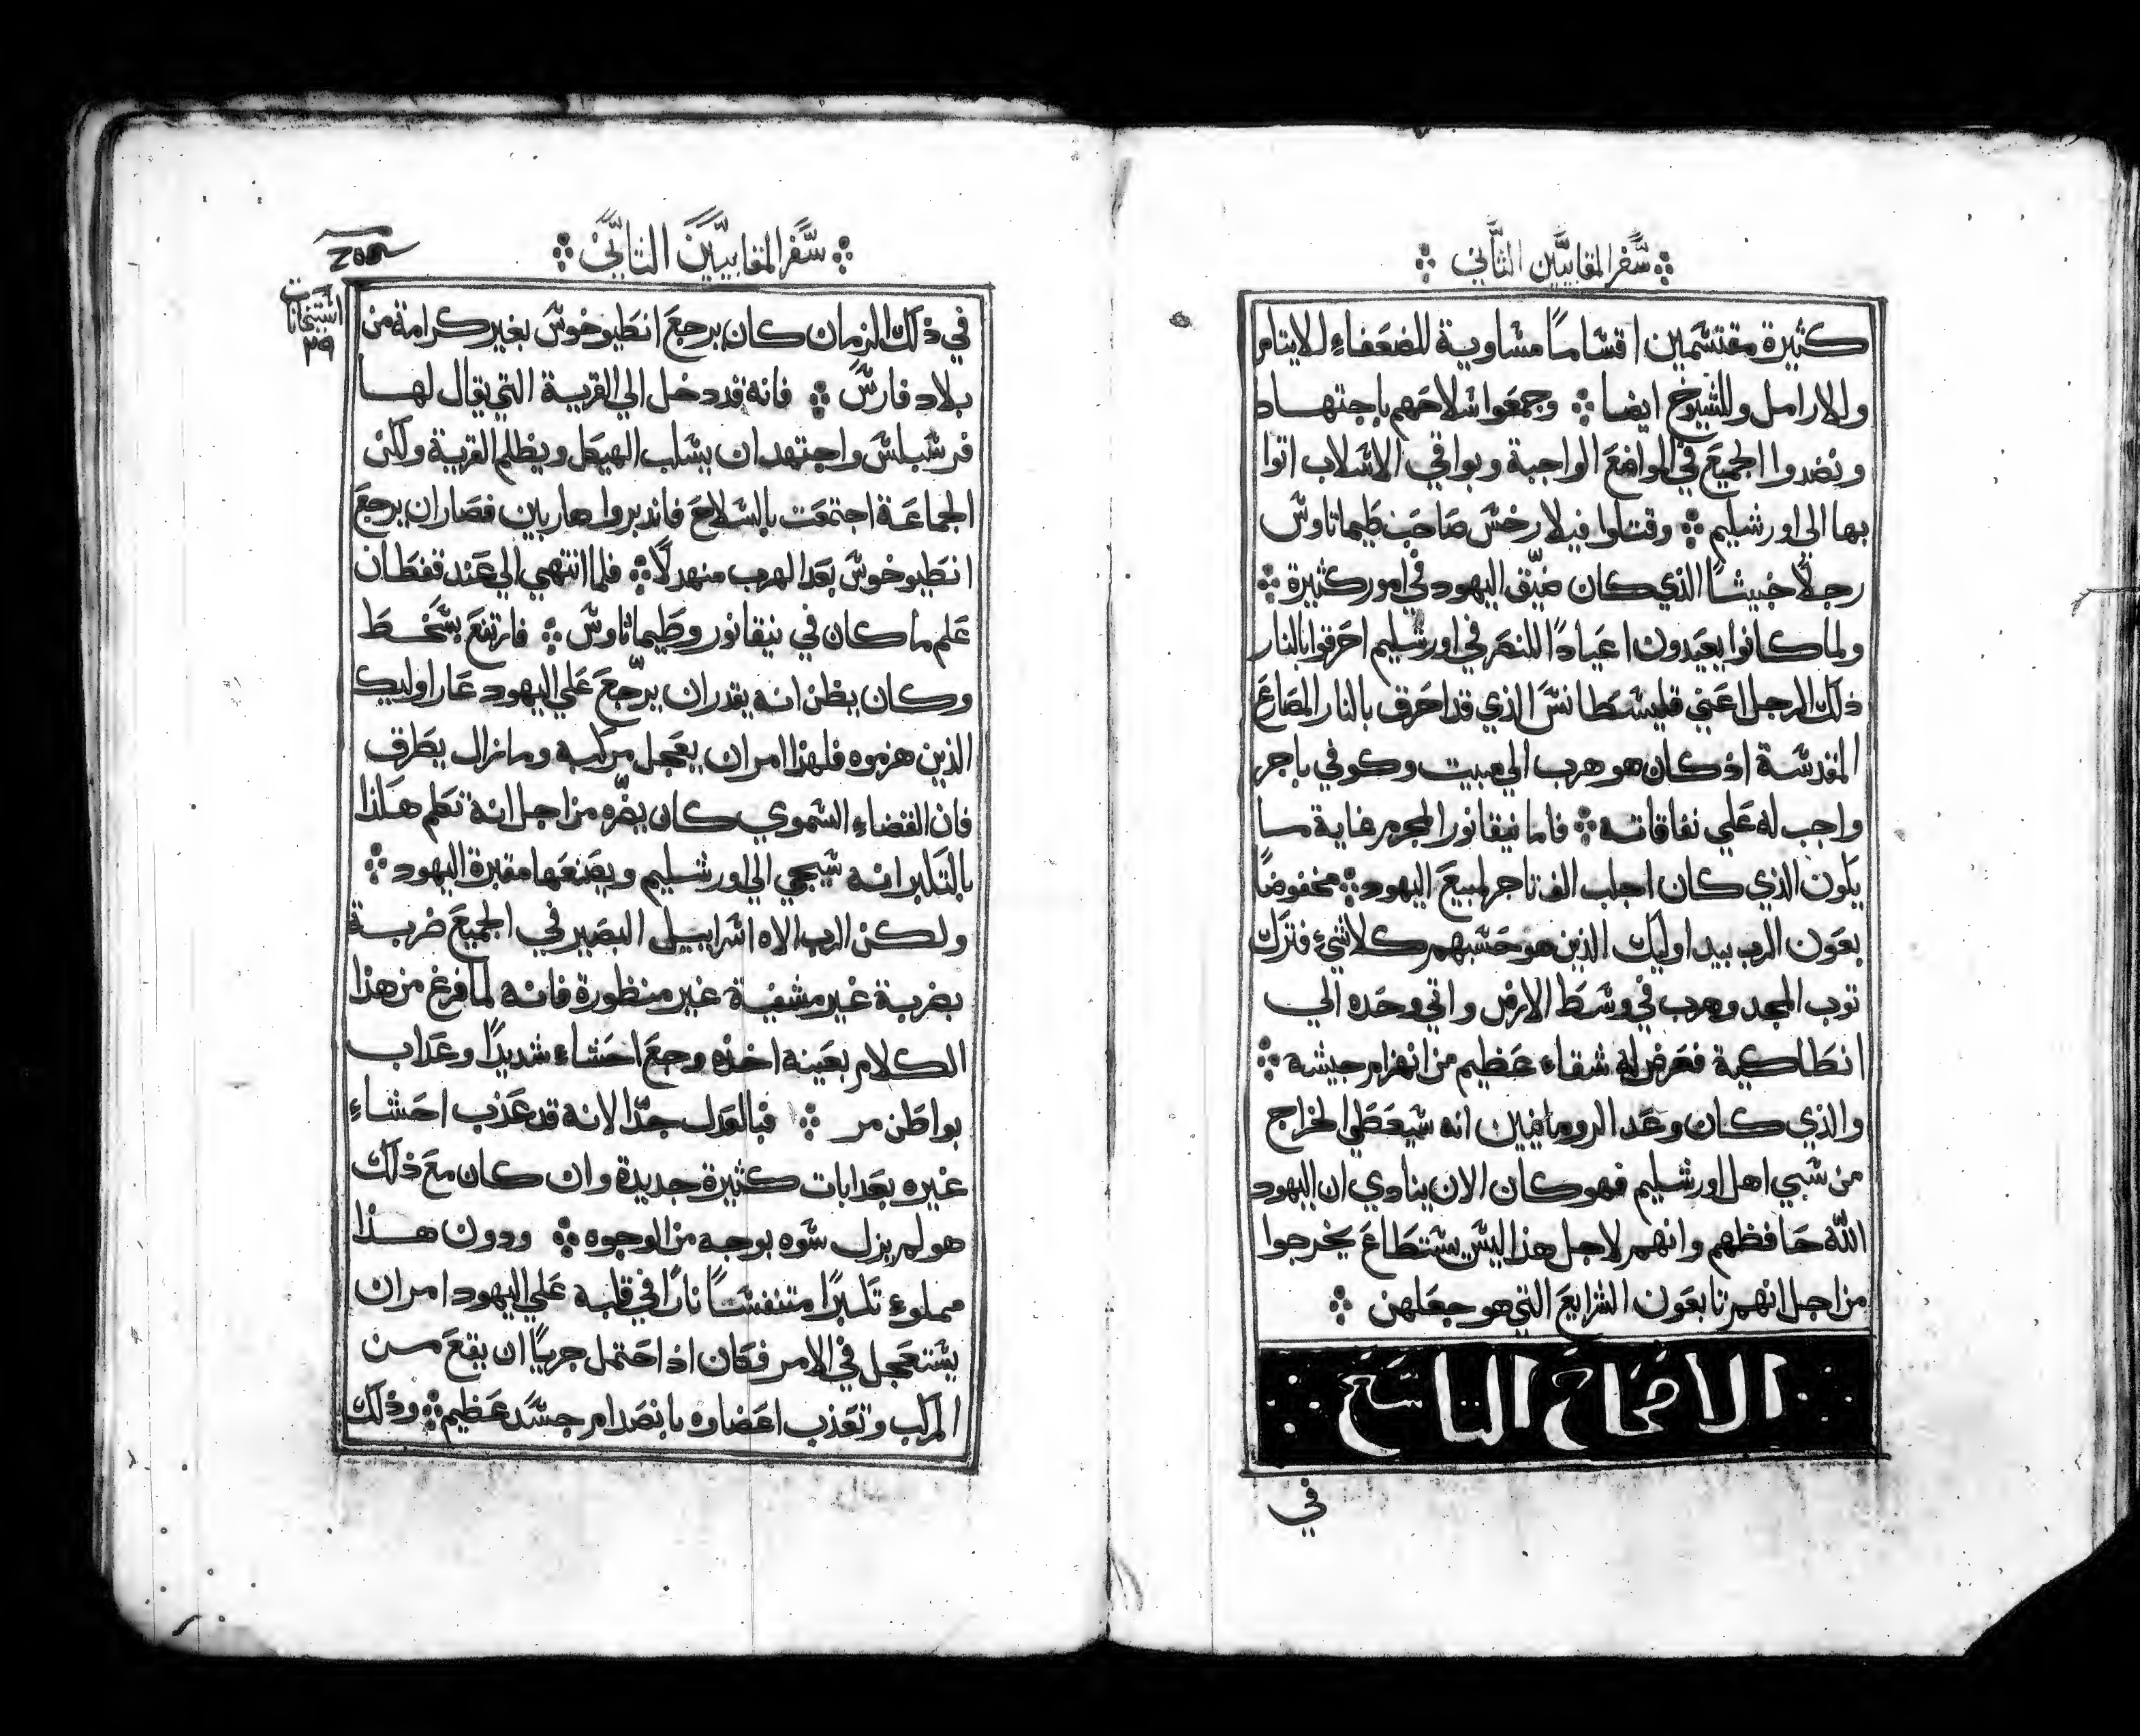 سفر المقابيين الثاني
كثيرة مقتسمين اقساما مساوية للضعفاء للايتام
وللارامل وللشيوخ ايضا وجمعوا سلاحهم باجتهاد
ونضدوا الجميع في المواضع الواجبة وبواقي الاسلاب اتوا
بها الى اورشليم وقتلوا فيلارخس صاحب طيماتاوس
رجلا خبيثا الذي كان ضيق اليهود في امور كثيرة
ولما كانوا يعيدون اعيادا للنصر في اورشليم احرقوا بالنار
ذلك الرجل اعني قليسطانس الذي قد احرق بالنار المصارع
المقدسة اذ كان هو هرب الي مبيت وكوفي باجر
واجب له علي نفاقاته فاما نيقانور المجرم غاية ما
يكون الذي كان اجلب الف تاجر لمبيع اليهود مخفوضا
بعون الرب بيد اوليك الذين هو حسبهم كلاشيء فترك
توب المجد وهرب في وسط الارض واتي وحده الي
انطاكية فعرض له شقاء عظيم من انهزام جيشه
والذي كان وعد الرومانيين انه سيعطي الخراج
من سبي اهل اورشليم فهو كان الان ينادي ان اليهود
الله حافظهم وانهم لاجل هذا ليس يستطاع يخرجوا
من اجل انهم تابعون الشرايع التي هو جعلهن
الاصحاح التاسع
في
سفر المقابيين الثاني
استيخانات
٢٩
في ذلك الزمان كان يرجع انطيوخوس بغير كرامة من
بلاد فارس فانه قد دخل الي القرية التي يقال لها
فرسبلس واجتهد ان يسلب الهيكل ويظلم القرية ولكن
الجماعة اجتمعت بالسلاح فاندبروا هاربين فصار ان يرجع
انطيوخوس بعد الهرب منهدلا فلما انتهي الي عند قفطان
علم ما كان في نيقانور وطيماتاوس فارتفع بسخط
وكان يظن انه يقدر ان يرجع علي اليهود عار اوليك
الذين هزموه فلهذا امر ان يعجل مركبه وما زال يطرق
فان القضاء السموي كان يضره من اجل انه تكلم هكذا
بالتكبر انه سيجي الي اورشليم ويصنعها مقبرة اليهود
ولكن الرب الاه اسراييل البصير في الجميع ضربه
بضربة غير مشفية غير منظورة فانه لما فرغ من هذا
الكلام بعينه اخذه وجع احشاء شديدا وعذاب
بواطن مر فبالعدل جدا لانه قد عذب احشاء
غيره بعدابات كثيرة جديدة وان كان مع ذلك
هو لم يزل سوه بوجه من الوجوه ودون هذا
مملوء تكبرا متنفسا نارا في قلبه علي اليهود امر ان
يستعجل في الامر فكان اذ احتمل جريا ان يقع من
المركب وتعذب اعضاوه بانصدام جسد عظيم وذلك